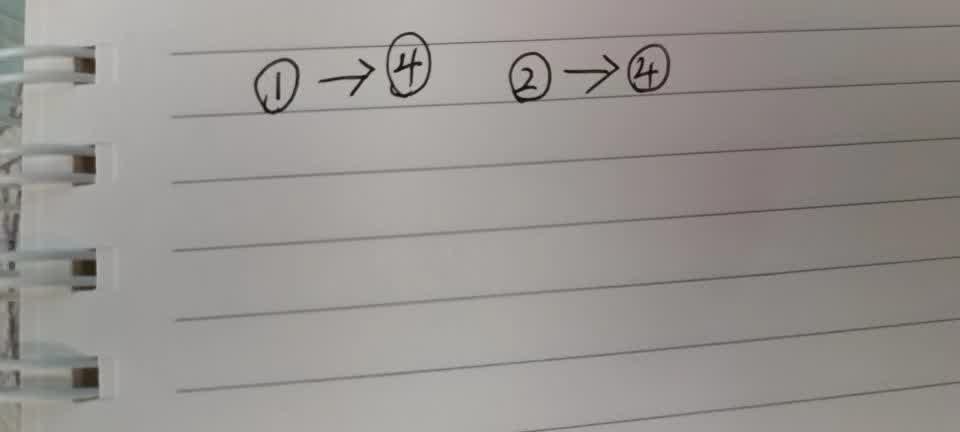 ① → ④ ② → ④